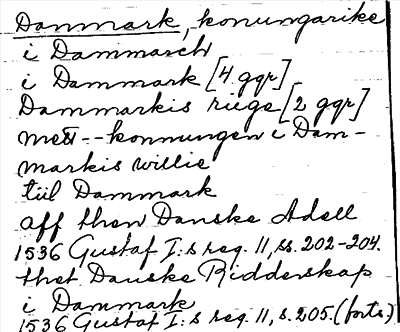 Danmark, konungarike
i Dammarch
i Dammark [4 ggr]
Dammarkis riige [2 ggr]
mett -- konnungen i Dam-
markis willie
till Dammark
aff then Danske Adell
1536 Gustaf I:s reg. 11, ss. 202-204.
thet Danske Ridderskap
i Dammark
1536 Gustaf I:s reg. 11, s. 205. (forts.)